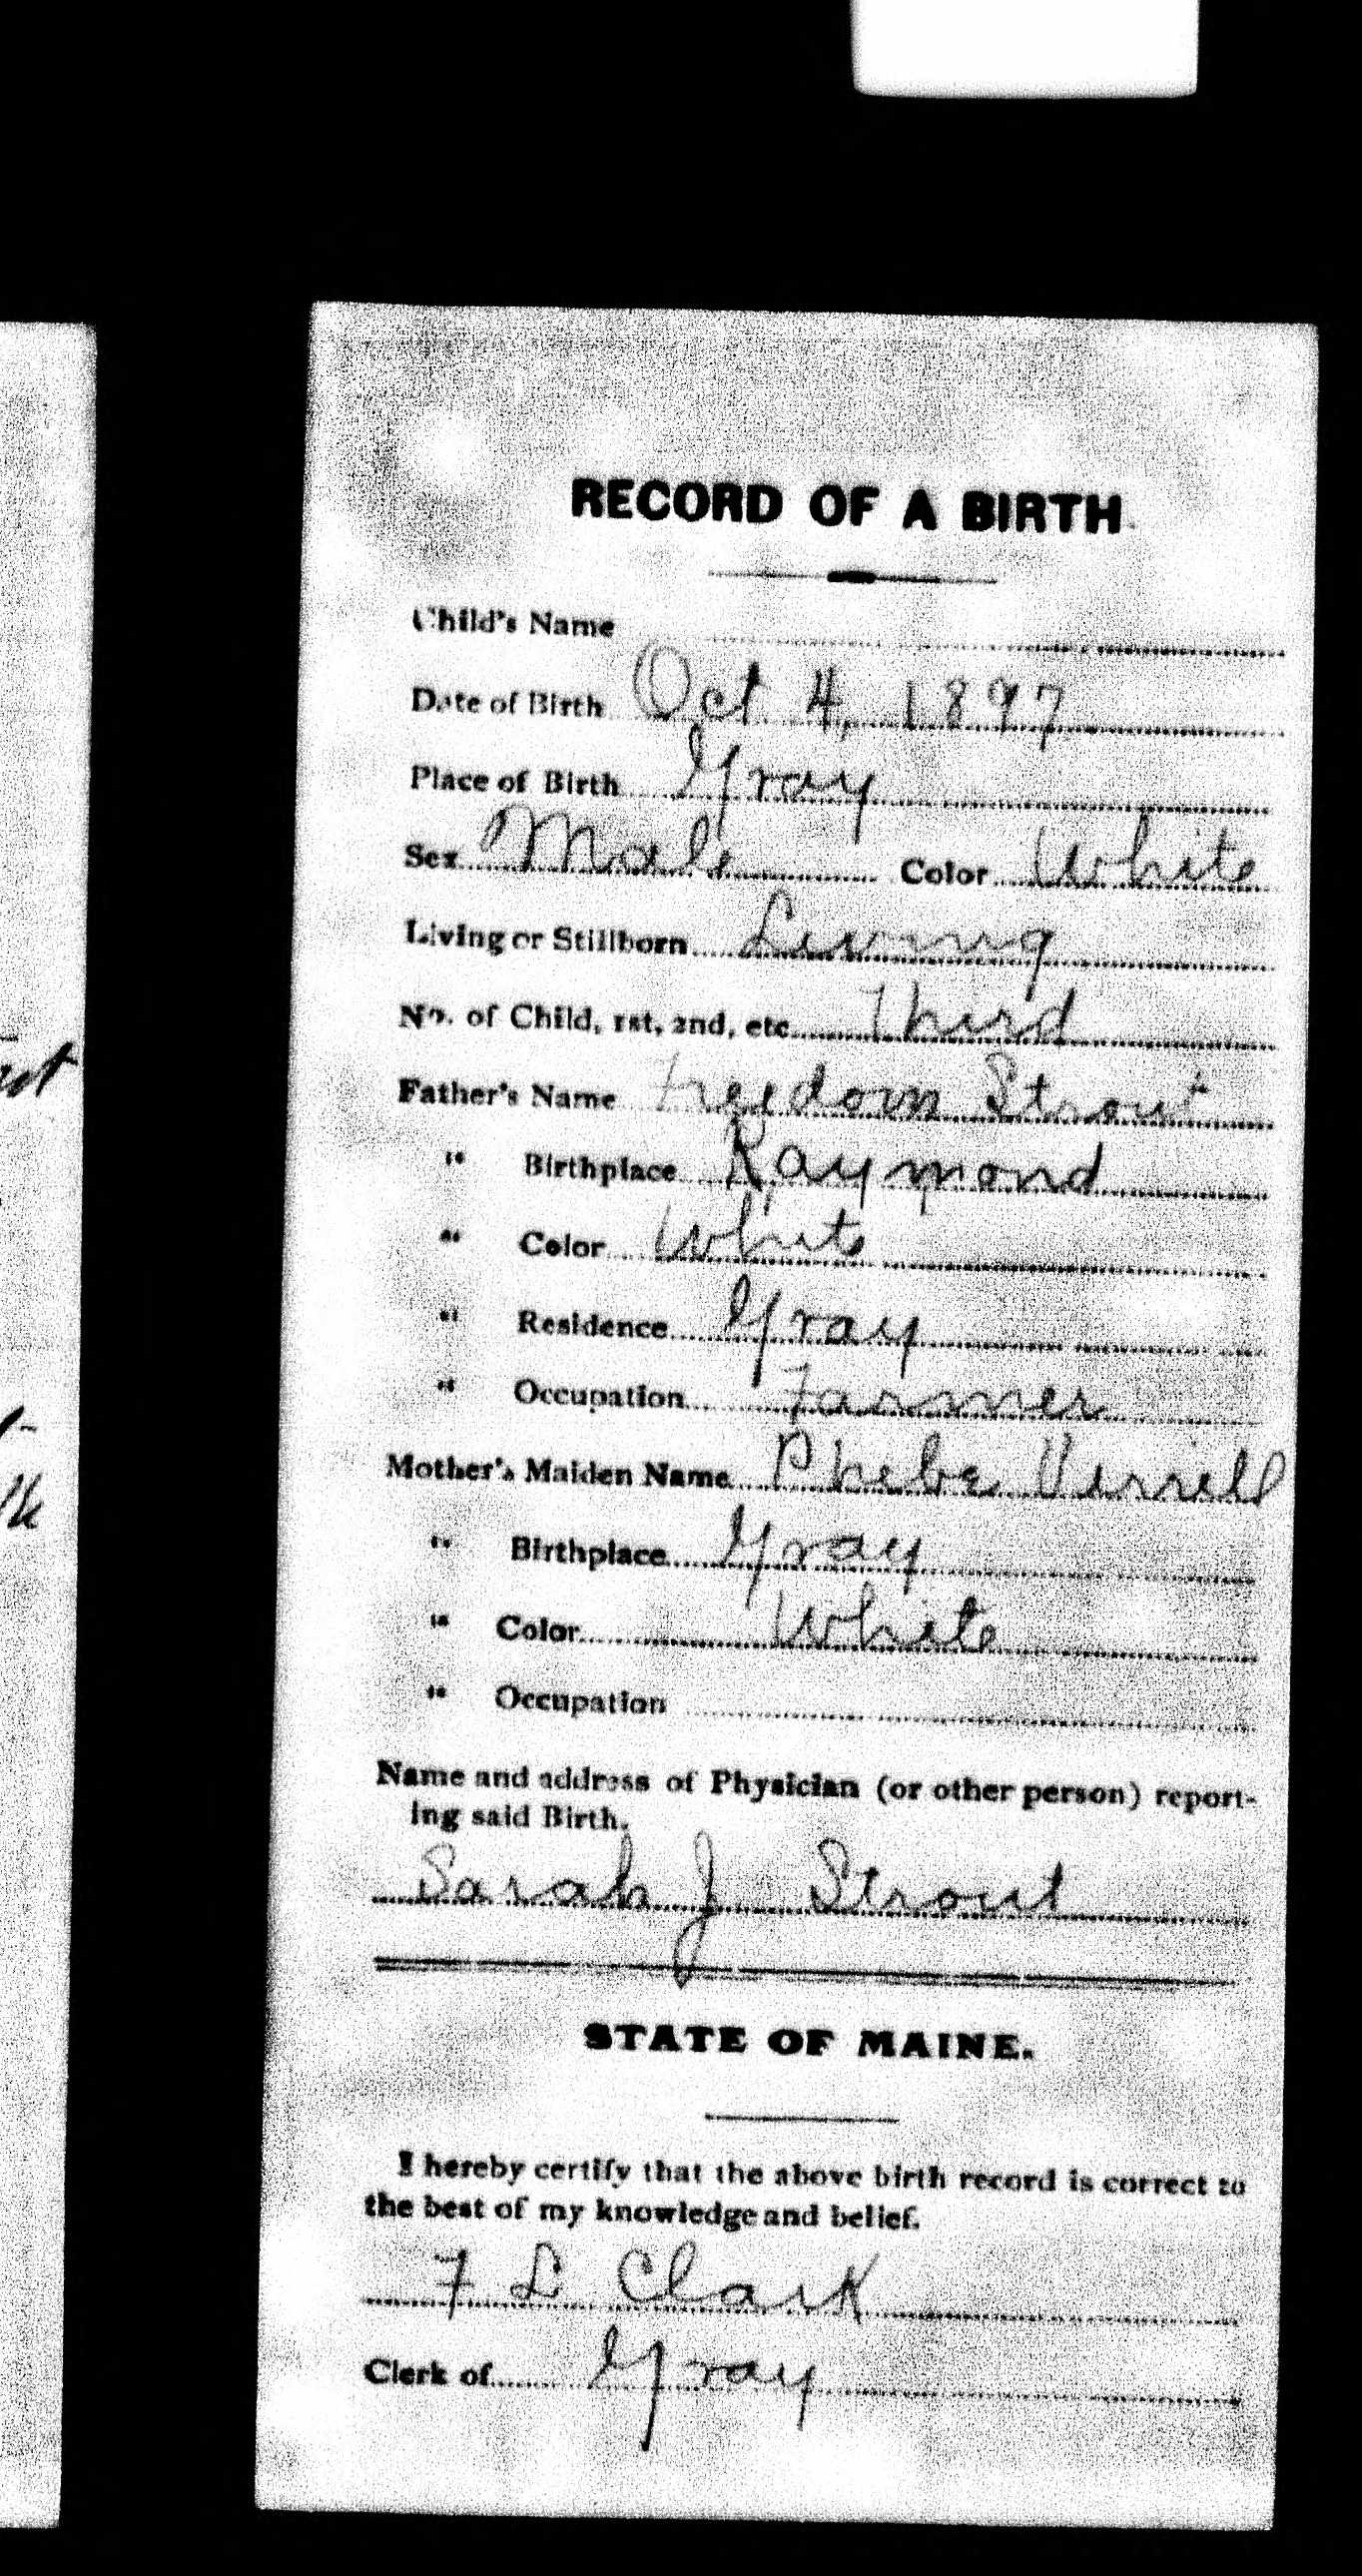 RECORD OF A BIRTH
Child's Name
Date of Birth Oct 4, 1897
Place of Birth Gray
Sex Male Color White
Living or Stillborn Living
No. of Child, 1st, 2nd, etc. Third
Father's Name Freedom Strout
" Birthplace Raymond
" Color White
" Residence Gray
" Occupation Farmer
Mother's Maiden Name Phebe Verrill
" Birthplace Gray
" Color White
" Occupation
Name and address of Physician (or other person) report-
ing said Birth.
Sarah J Strout
STATE OF MAINE.
I hereby certify that the above birth record is correct to
the best of my knowledge and belief.
F L Clark
Clerk of Gray